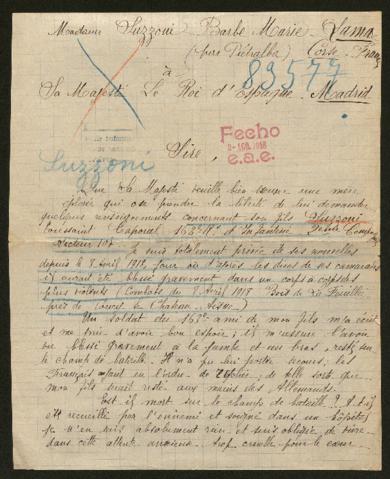 Madame Suzzoni Barbe Marie - Lama
(par Pietralba) Corse - France
à
83577
Sa Majesté Le Roi d'Espagne - Madrid
Fecho
AGO. 1918
e.a.e.
Suzzoni
Sire,
Que Sa Majesté veuille bien excuser une mère
éplorée qui ose prendre la liberté de lui demander
quelques renseignements concernant son fils Suzzoni
Toussaint Caporal 163e Rt d'Infanterie Compagnie
Secteur
Je suis totalement privée de ses nouvelles
depuis le 8 Avril 1918, jour où d'après les dires de ses camarades
il aurait été blessé gravement dans un corps à corps des
plus violents (Combats du 8 Avril 1918 Bois de
près de
Un soldat du 163e ami de mon fils m'a écrit
et me dit d'avoir bon espoir; il m'assure l'avoir
vu blessé gravement à la jambe et au bras, resté sur
le champ de bataille. Il n'a pu lui porter secours, les
Français ayant eu l'ordre de de telle sorte que
mon fils serait resté aux mains des Allemands.
Est-il mort sur le champ de bataille? A-t-il
été recueilli par l'ennemi et soigné dans un hôpital,
je n'en sais absolument rien et suis obligée de vivre
dans cette attente anxieuse trop cruelle pour le cœur